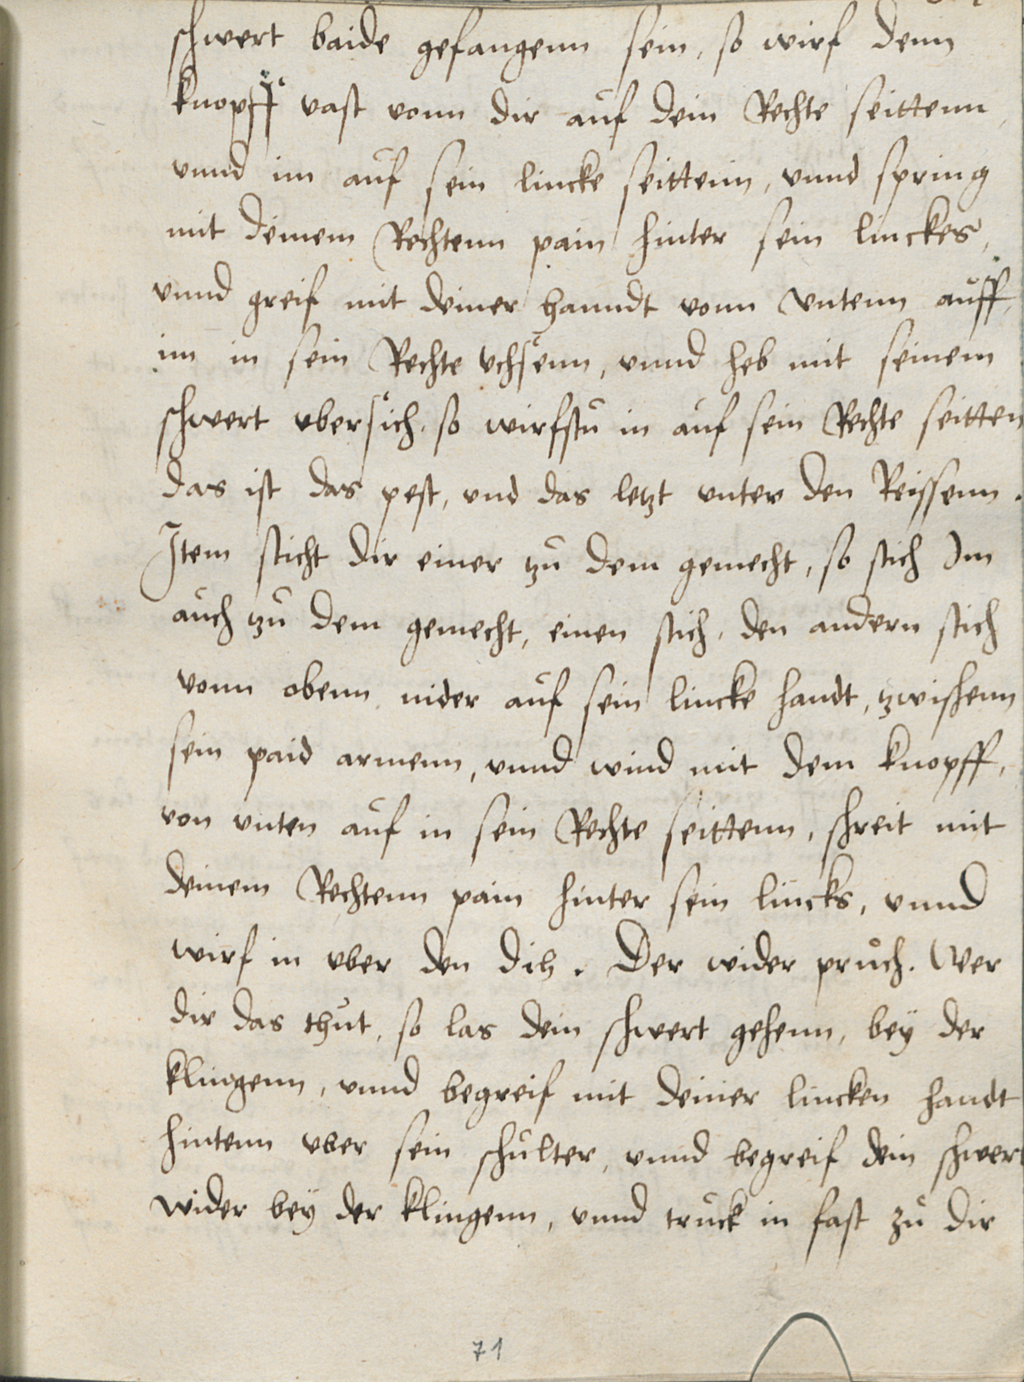 schwert baide gefangenn sein, so wirf denn
knopff vast vonn dir auf dein Rechte seittenn,
vnnd im auf sein lincke seittenn, vnnd spring
mit deinem Rechtenn pain hinter sein linckes,
vnnd greif mit deiner hanndt vonn vntenn auff,
im in sein Rechte vchsenn, vnnd heb mit seinem
schwert vbersich, so wirfstu in auf sein Rechte seitten
das ist das pest, vnd das letzt vnter den Reissenn.
Item sticht dir einer zu dem gemecht, so stich Im
auch zu dem gemecht, einen stich, den andern stich
vonn obenn nider auf sein lincke handt, zwishenn
sein paid armenn, vnnd wind mit dem knopff,
von vnten auf in sein Rechte seittenn, shreit mit
deinem Rechtenn pain hinter sein lincks, vnnd
wirf in vber den dih. Der wider pruch. Wer
dir das thut, so las dein shwert gehenn, bey der
klingenn, vnnd begreif mit deiner lincken handt
hintenn vber sein schulter, vnnd begreif dein shwert
wider bey der klingenn, vnnd truck in fast zu dir
71